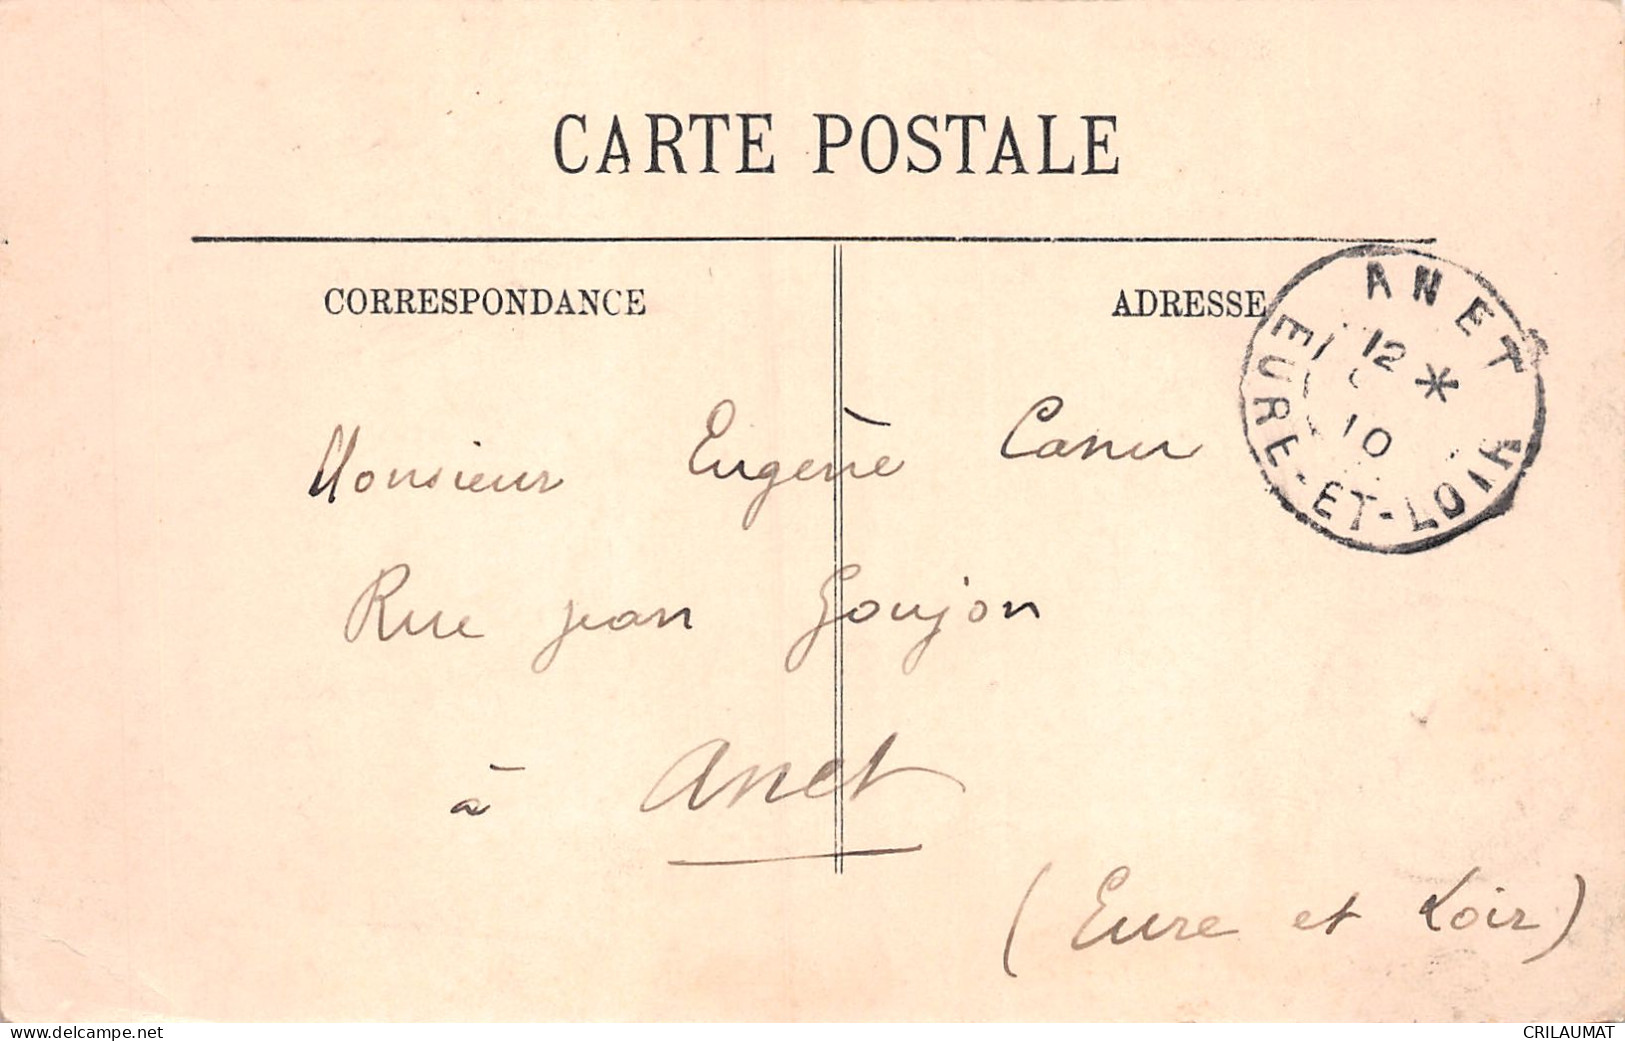 CARTE POSTALE
CORRESPONDANCE
ADRESSE
ANET
12 *
10
EURE-ET-LOIR
Monsieur Eugène Canu
Rue Jean Goujon
à Anet
(Eure et Loir)
www.delcampe.net
CRILAUMAT